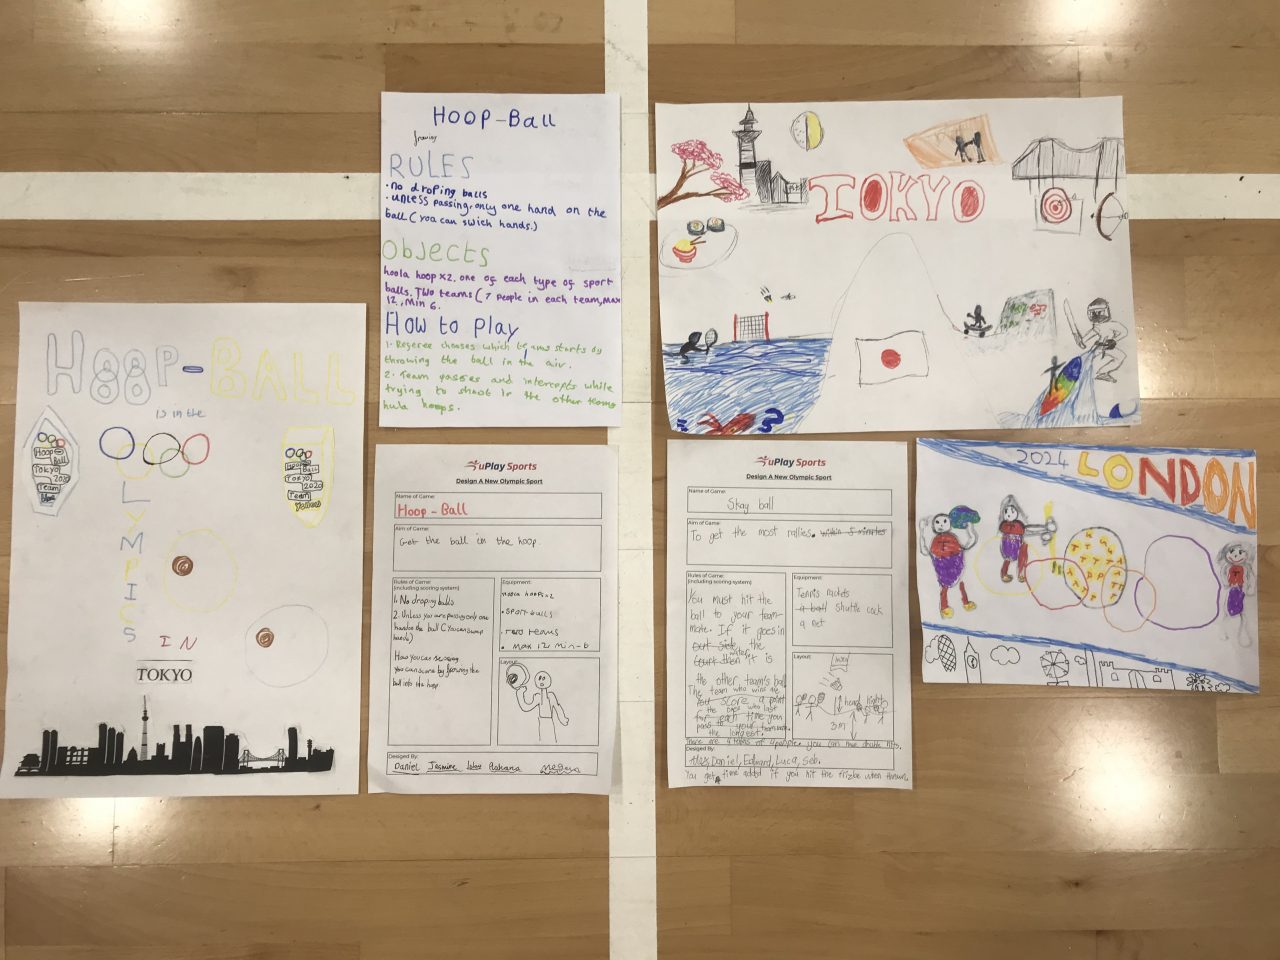 HOOP-BALL
is in the
Hoop-
Ball
Tokyo
2020
Team
Blue
Hoop-
Ball
Tokyo
2020
Team
Yellow
OLYMPICS
IN
TOKYO
Hoop-Ball
RULES
• no droping balls
• unless passing, only one hand on the
ball (you can swich hands.)
Objects
hoola hoop x2, one of each type of sport
balls. Two teams (7 people in each team, max
12, Min 6.
How to play
1. Referee chooses which team starts by
throwing the ball in the air.
2. Team passes and intercepts while
trying to shoot in the other teams
hula hoops.
uPlay Sports
Design A New Olympic Sport
Name of Game:
Hoop-Ball
Aim of Game:
Get the ball in the hoop.
Rules of Game:
(including scoring system)
1. No droping balls
2. Unless you are passing only one
hand on the ball (you can swap
hands)
How you can be scoring
you can score by throwing the
ball into the hoop
Equipment:
hoola hoops x2
• sport balls
• Two teams
• max 12 min-6
Layout:
Desiged By:
Daniel Jasmine
TOKYO
uPlay Sports
Design A New Olympic Sport
Name of Game:
Skay ball
Aim of Game:
To get the most rallies. within 5 minutes
Rules of Game:
(including scoring system)
You must hit the
ball to your team-
mate. If it goes in
out side the
water
Court then it is
the other team's ball
The team who wins are
You score a point
the ones who last
for each time you
pass to your team mate.
the longest.
There are 4 teams of 4 people. you can have double hits.
Equipment:
Tennis rackets
a ball shuttle cock
a net
Layout:
head hight
3m
Desiged By:
Alex, Daniel, Edward, Luca, Seb.
You get time added if you hit the frizbe when thrown.
2024 LONDON